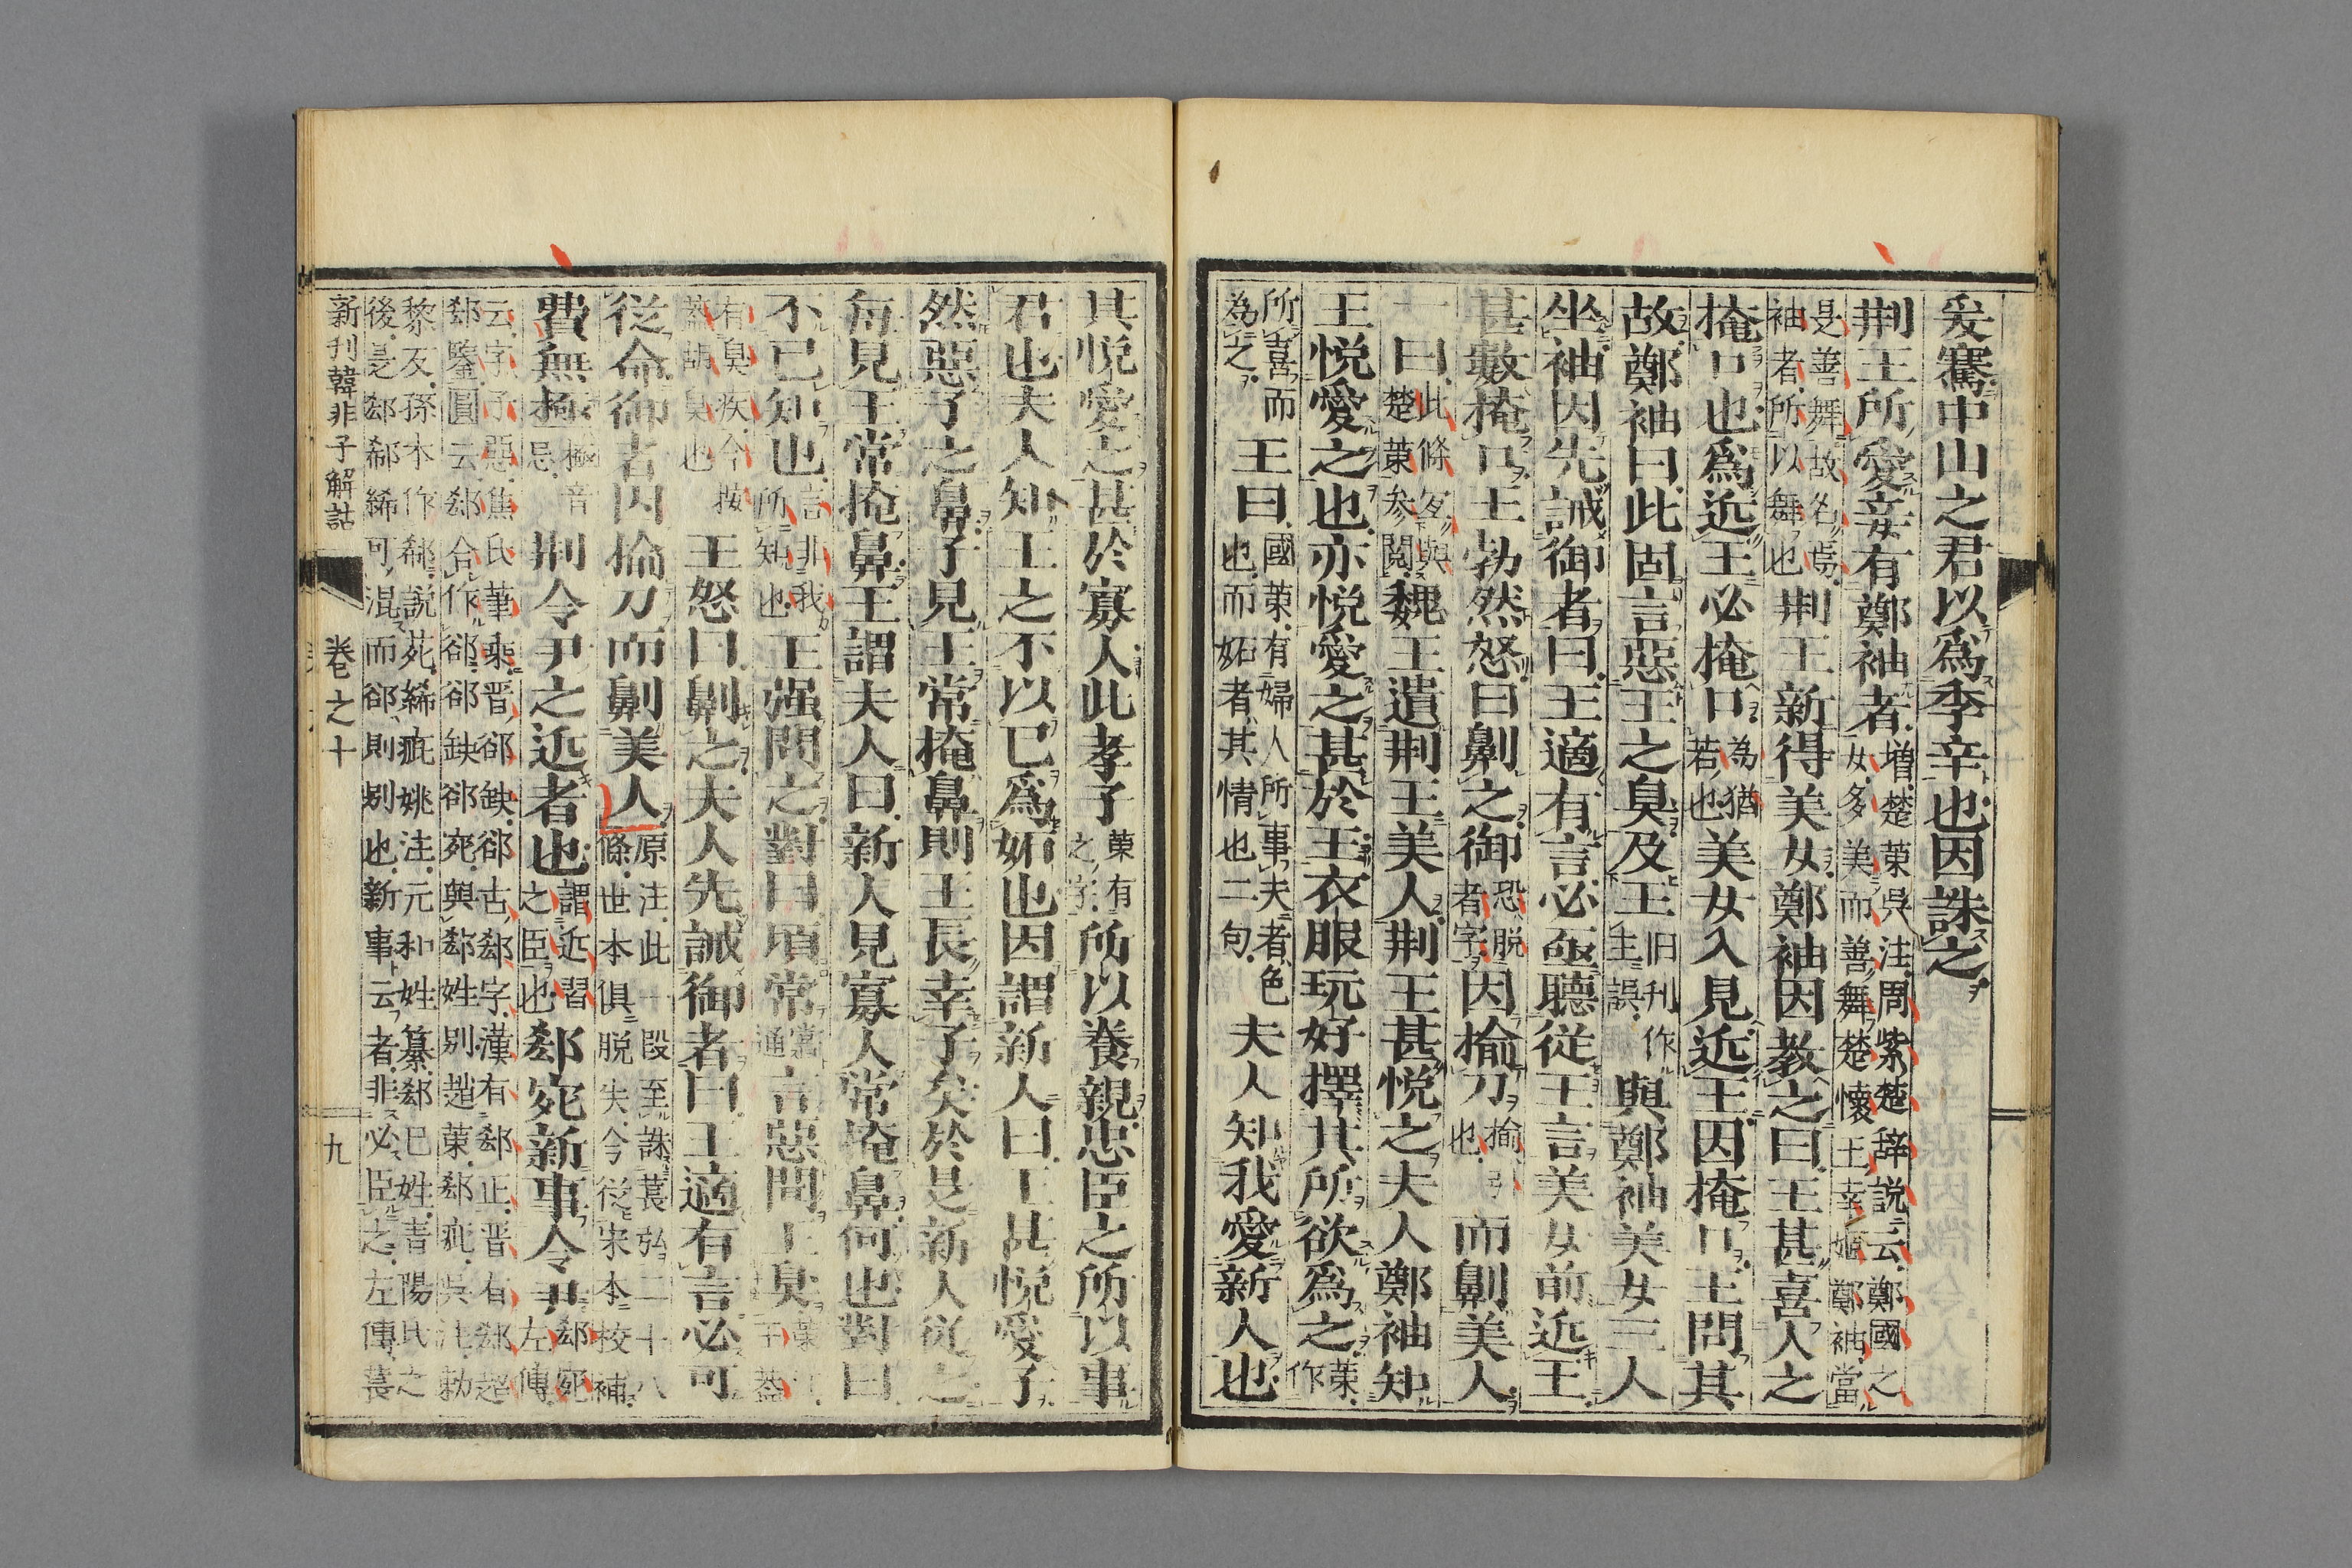 爰騫中山之君以爲季辛也因誅之
荆王所愛妾有鄭袖者増楚策呉注周紫楚辞説云鄭國之女多美而善舞楚懷王幸姬鄭袖當
是善舞故名焉袖者所以舞也荆王新得美女鄭袖因教之曰王甚喜人之
掩口也爲近王必掩口為猶若也美女入見近王因掩口王問其
故鄭袖曰此固言惡王之臭及王旧刊作主誤與鄭袖美女三人
坐袖因先誡御者曰王適有言必亟聽從王言美女前近王
甚數掩口王勃然怒曰劓之御恐脱者字因揄刀揄引也而劓美人
一曰此條宜與楚策参閲魏王遺荆王美人荆王甚悦之夫人鄭袖知
王悦愛之也亦悦愛之甚於王衣服玩好擇其所欲爲之策作
所喜而為之王曰國策有婦人所事夫者色也而妬者其情也二句夫人知我愛新人也
其悦愛之甚於寡人此孝子策有之字所以養親忠臣之所以事
君也夫人知王之不以已爲妬也因謂新人曰王甚悦愛子
然惡子之鼻子見王常掩鼻則王長幸子矣於是新人從之
毎見王常掩鼻王謂夫人曰新人見寡人常掩鼻何也對曰
不已知也言非我所知也王强問之對曰頃常當通言惡聞王臭
有臭疾今按王怒曰劓之夫人先誡御者曰王適有言必可
從命御者因揄刀而劓美人原注此一段至誅萇弘二十八條世本俱脱失今從宋本校補
費無極極音忌荆令尹之近者也謂近習之臣也郄宛新事令尹郄宛左傳
云字子惡焦氏筆乘晋郤缺郤古郄字漢有郄正晋有郄超
郄鑒圓云郄合作郤郤缺郤宛與郄姓别趙策郄疵呉注勅
黎反孫本作郗説苑絺疵姚注元和姓纂郄已姓青陽氏之
後是郄郗絺可混而郤則别也新事云者非必臣之左傳萇
新刊韓非子解詁 卷之十 九